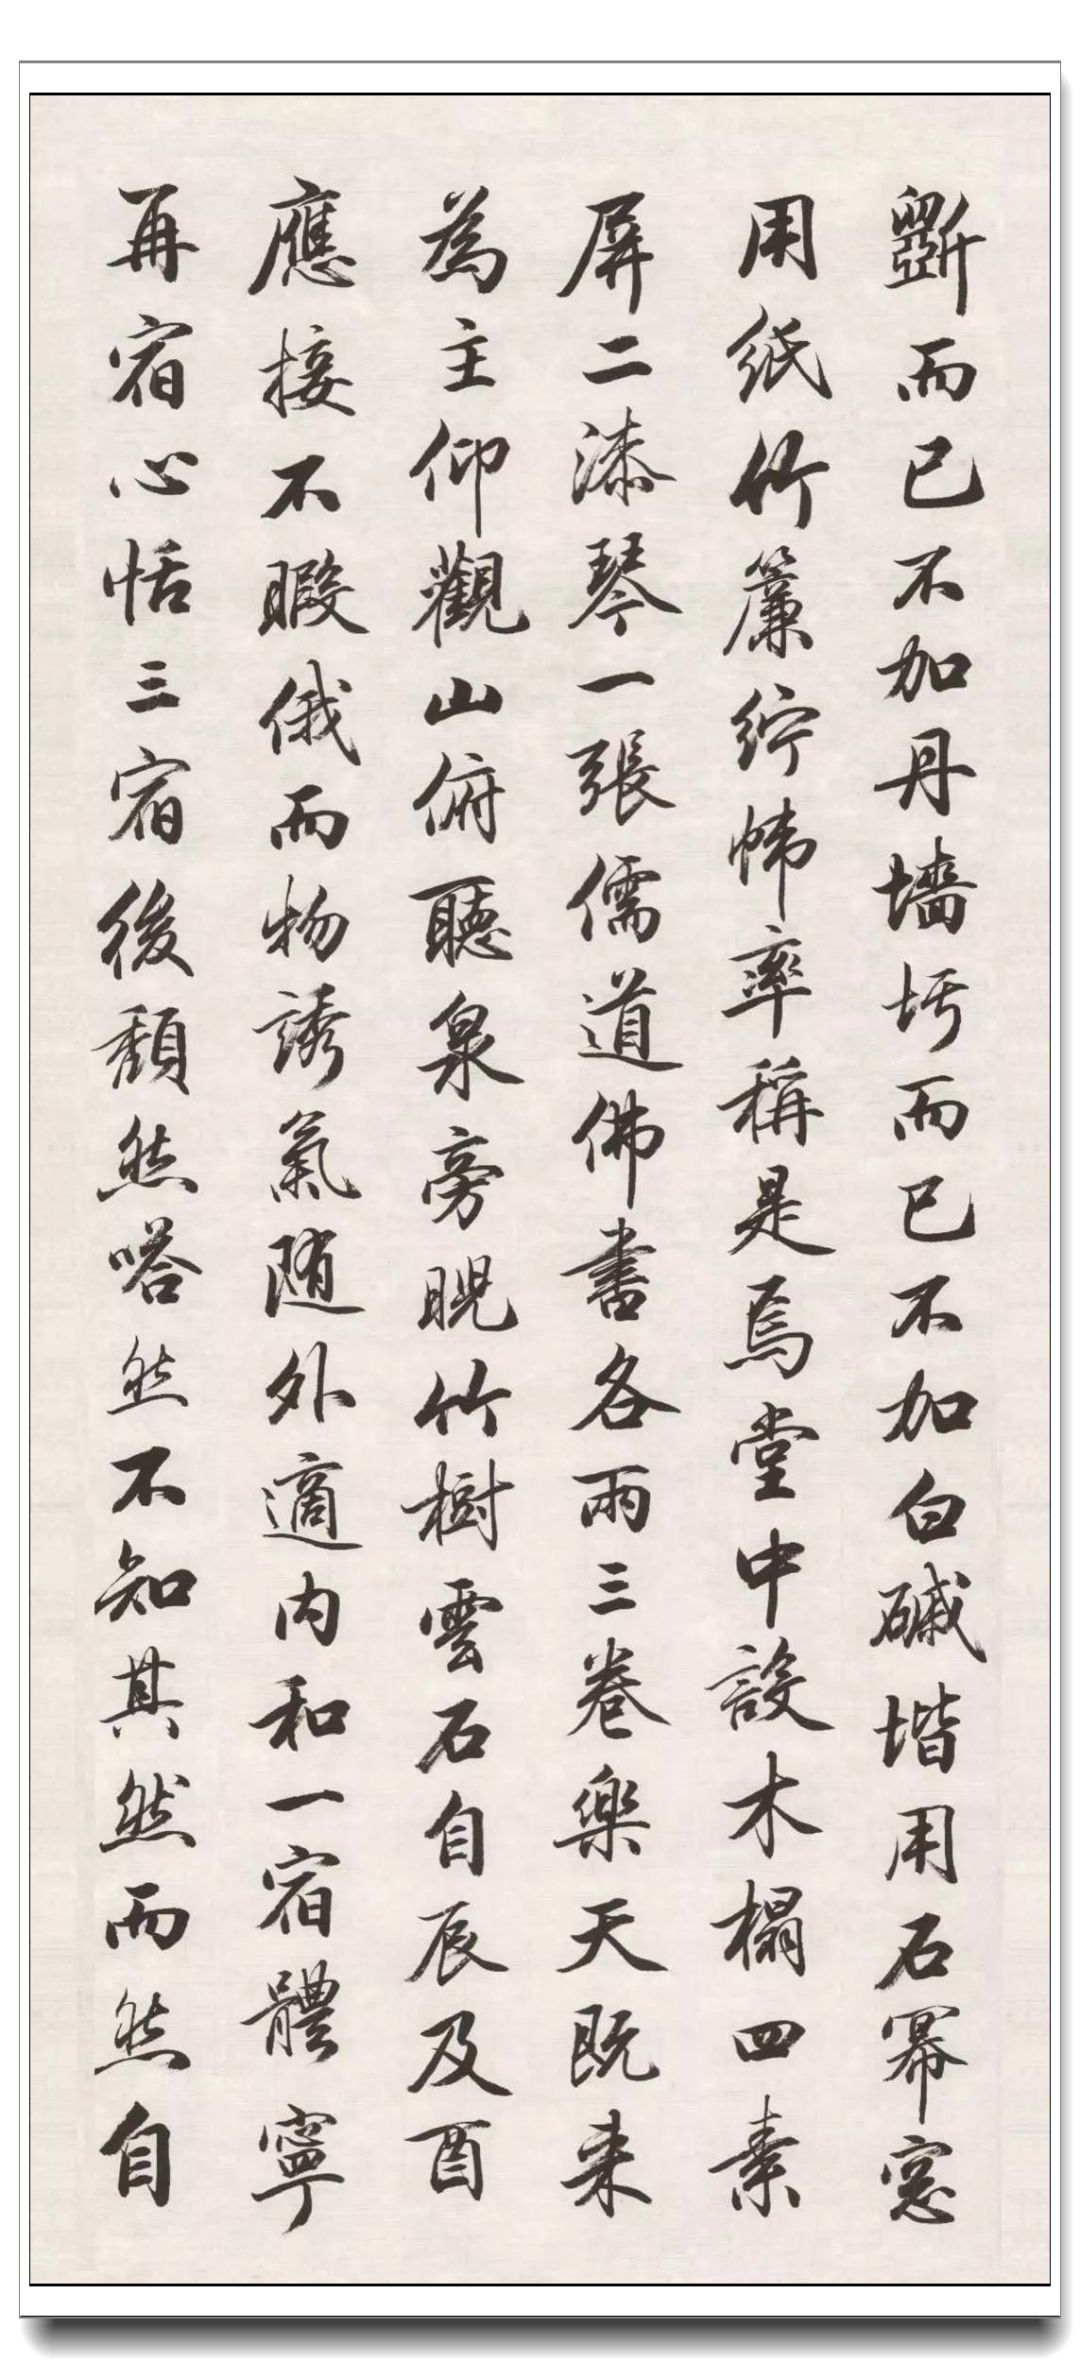 斲而已不加丹墻圬而已不加白磩堦用石冪窓
用紙竹簾紵幃率稱是焉堂中設木榻四素
屏二漆琴一張儒道佛書各兩三卷樂天既来
為主仰觀山俯聽泉旁睨竹樹雲石自辰及酉
應接不暇俄而物誘氣随外適内和一宿體寧
再宿心恬三宿後頹然嗒然不知其然而然自